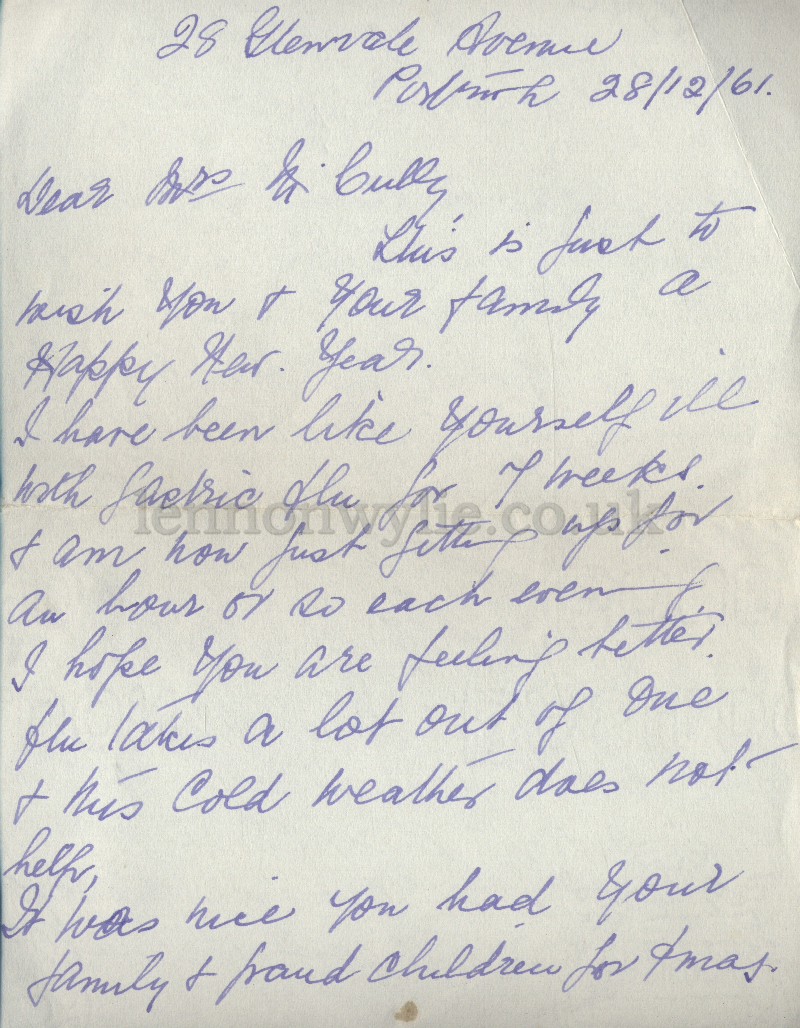 28 Glenvale Avenue
Portrush 28/12/61.
Dear Mrs Mc Cully
This is just to
wish you & your family a
Happy New. Year.
I have been like yourself ill
with gastric flu for 7 weeks.
& am now just getting up for
lennonwylie.co.uk
an hour or so each evening
I hope you are feeling better.
flu takes a lot out of one
& this cold weather does not
help,
It was nice you had your
family & grand children for Xmas.